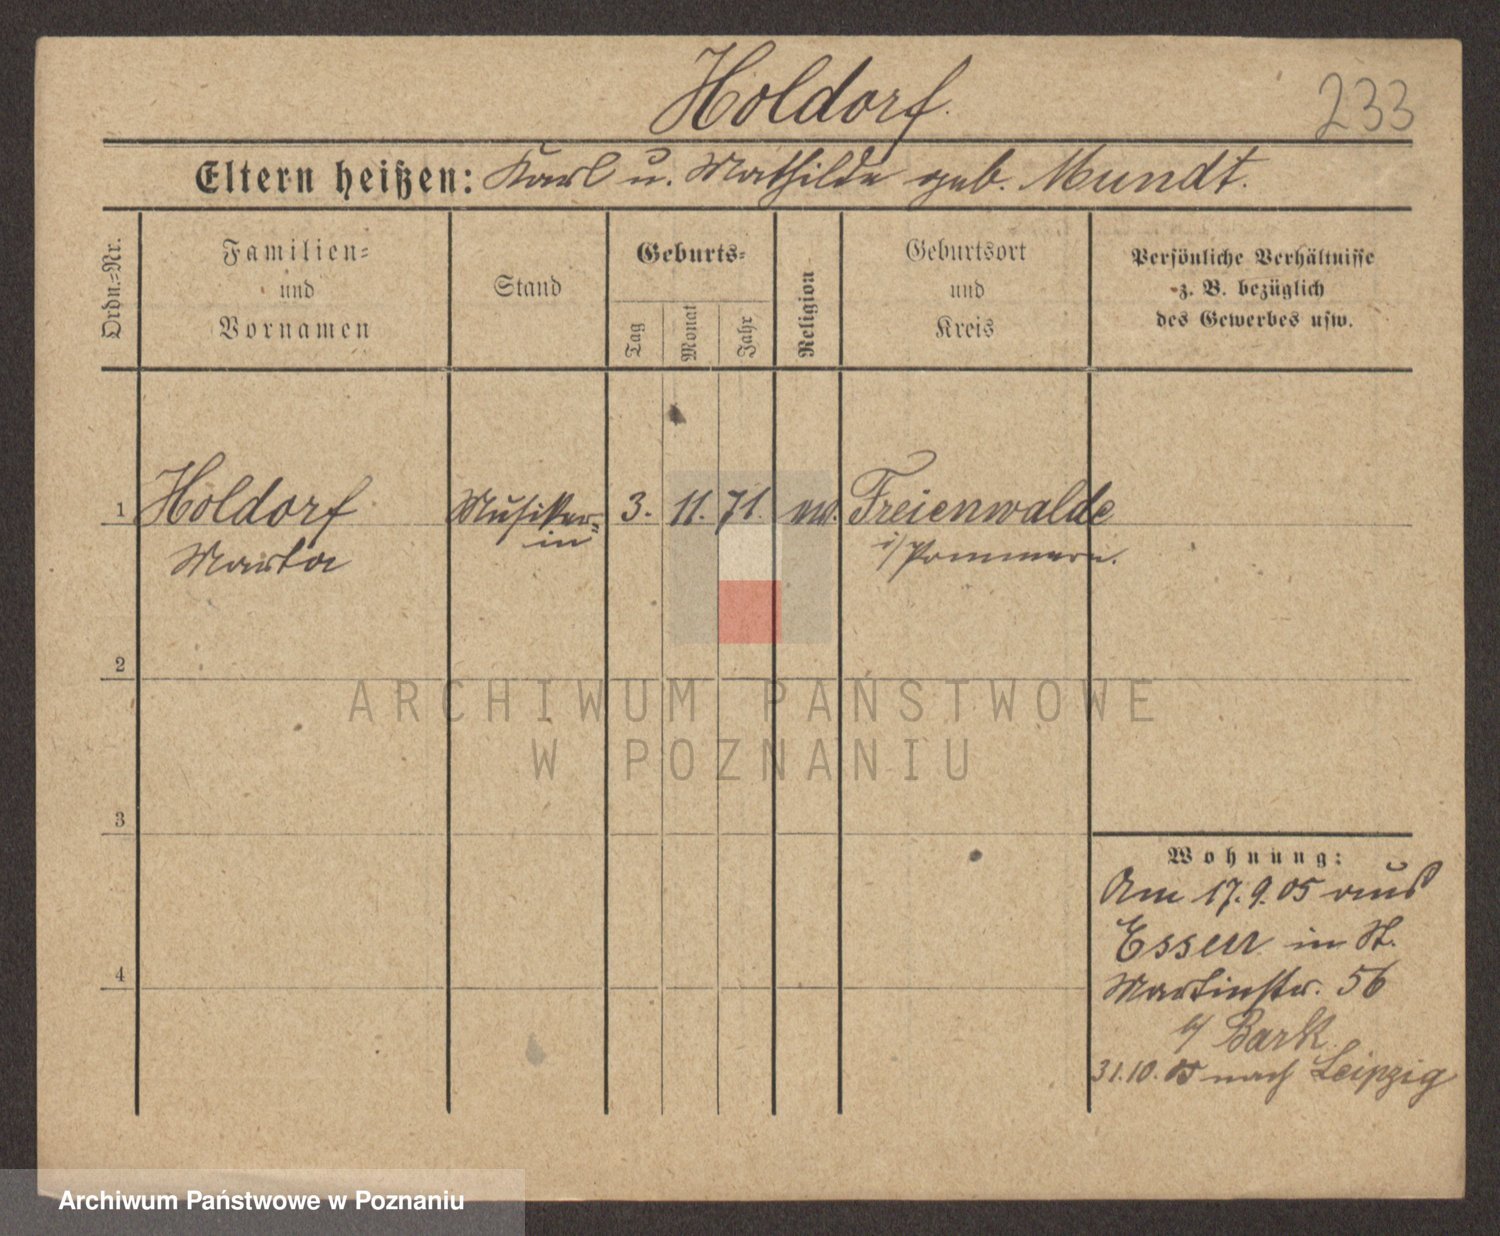 Holdorf.
233
Eltern heißen: Karl u. Mathilde geb. Mundt.
Ordn.=Nr.
Familien=
und
Vornamen
Stand
Geburts=
Tag
Monat
Jahr
Religion
Geburtsort
und
Kreis
Persönliche Verhältnisse
z. B. bezüglich
des Gewerbes usw.
1 Holdorf Musiker= 3. 11. 71. ev. Freienwalde
Marta in i/Pommern.
2
ARCHIWUM PAŃSTWOWE
W POZNANIU
3
Wohnung:
Am 17.9.05 aus
Essen in St.
Martinstr. 56
b/ Bark.
4
31.10.05 nach Leipzig
Archiwum Państwowe w Poznaniu